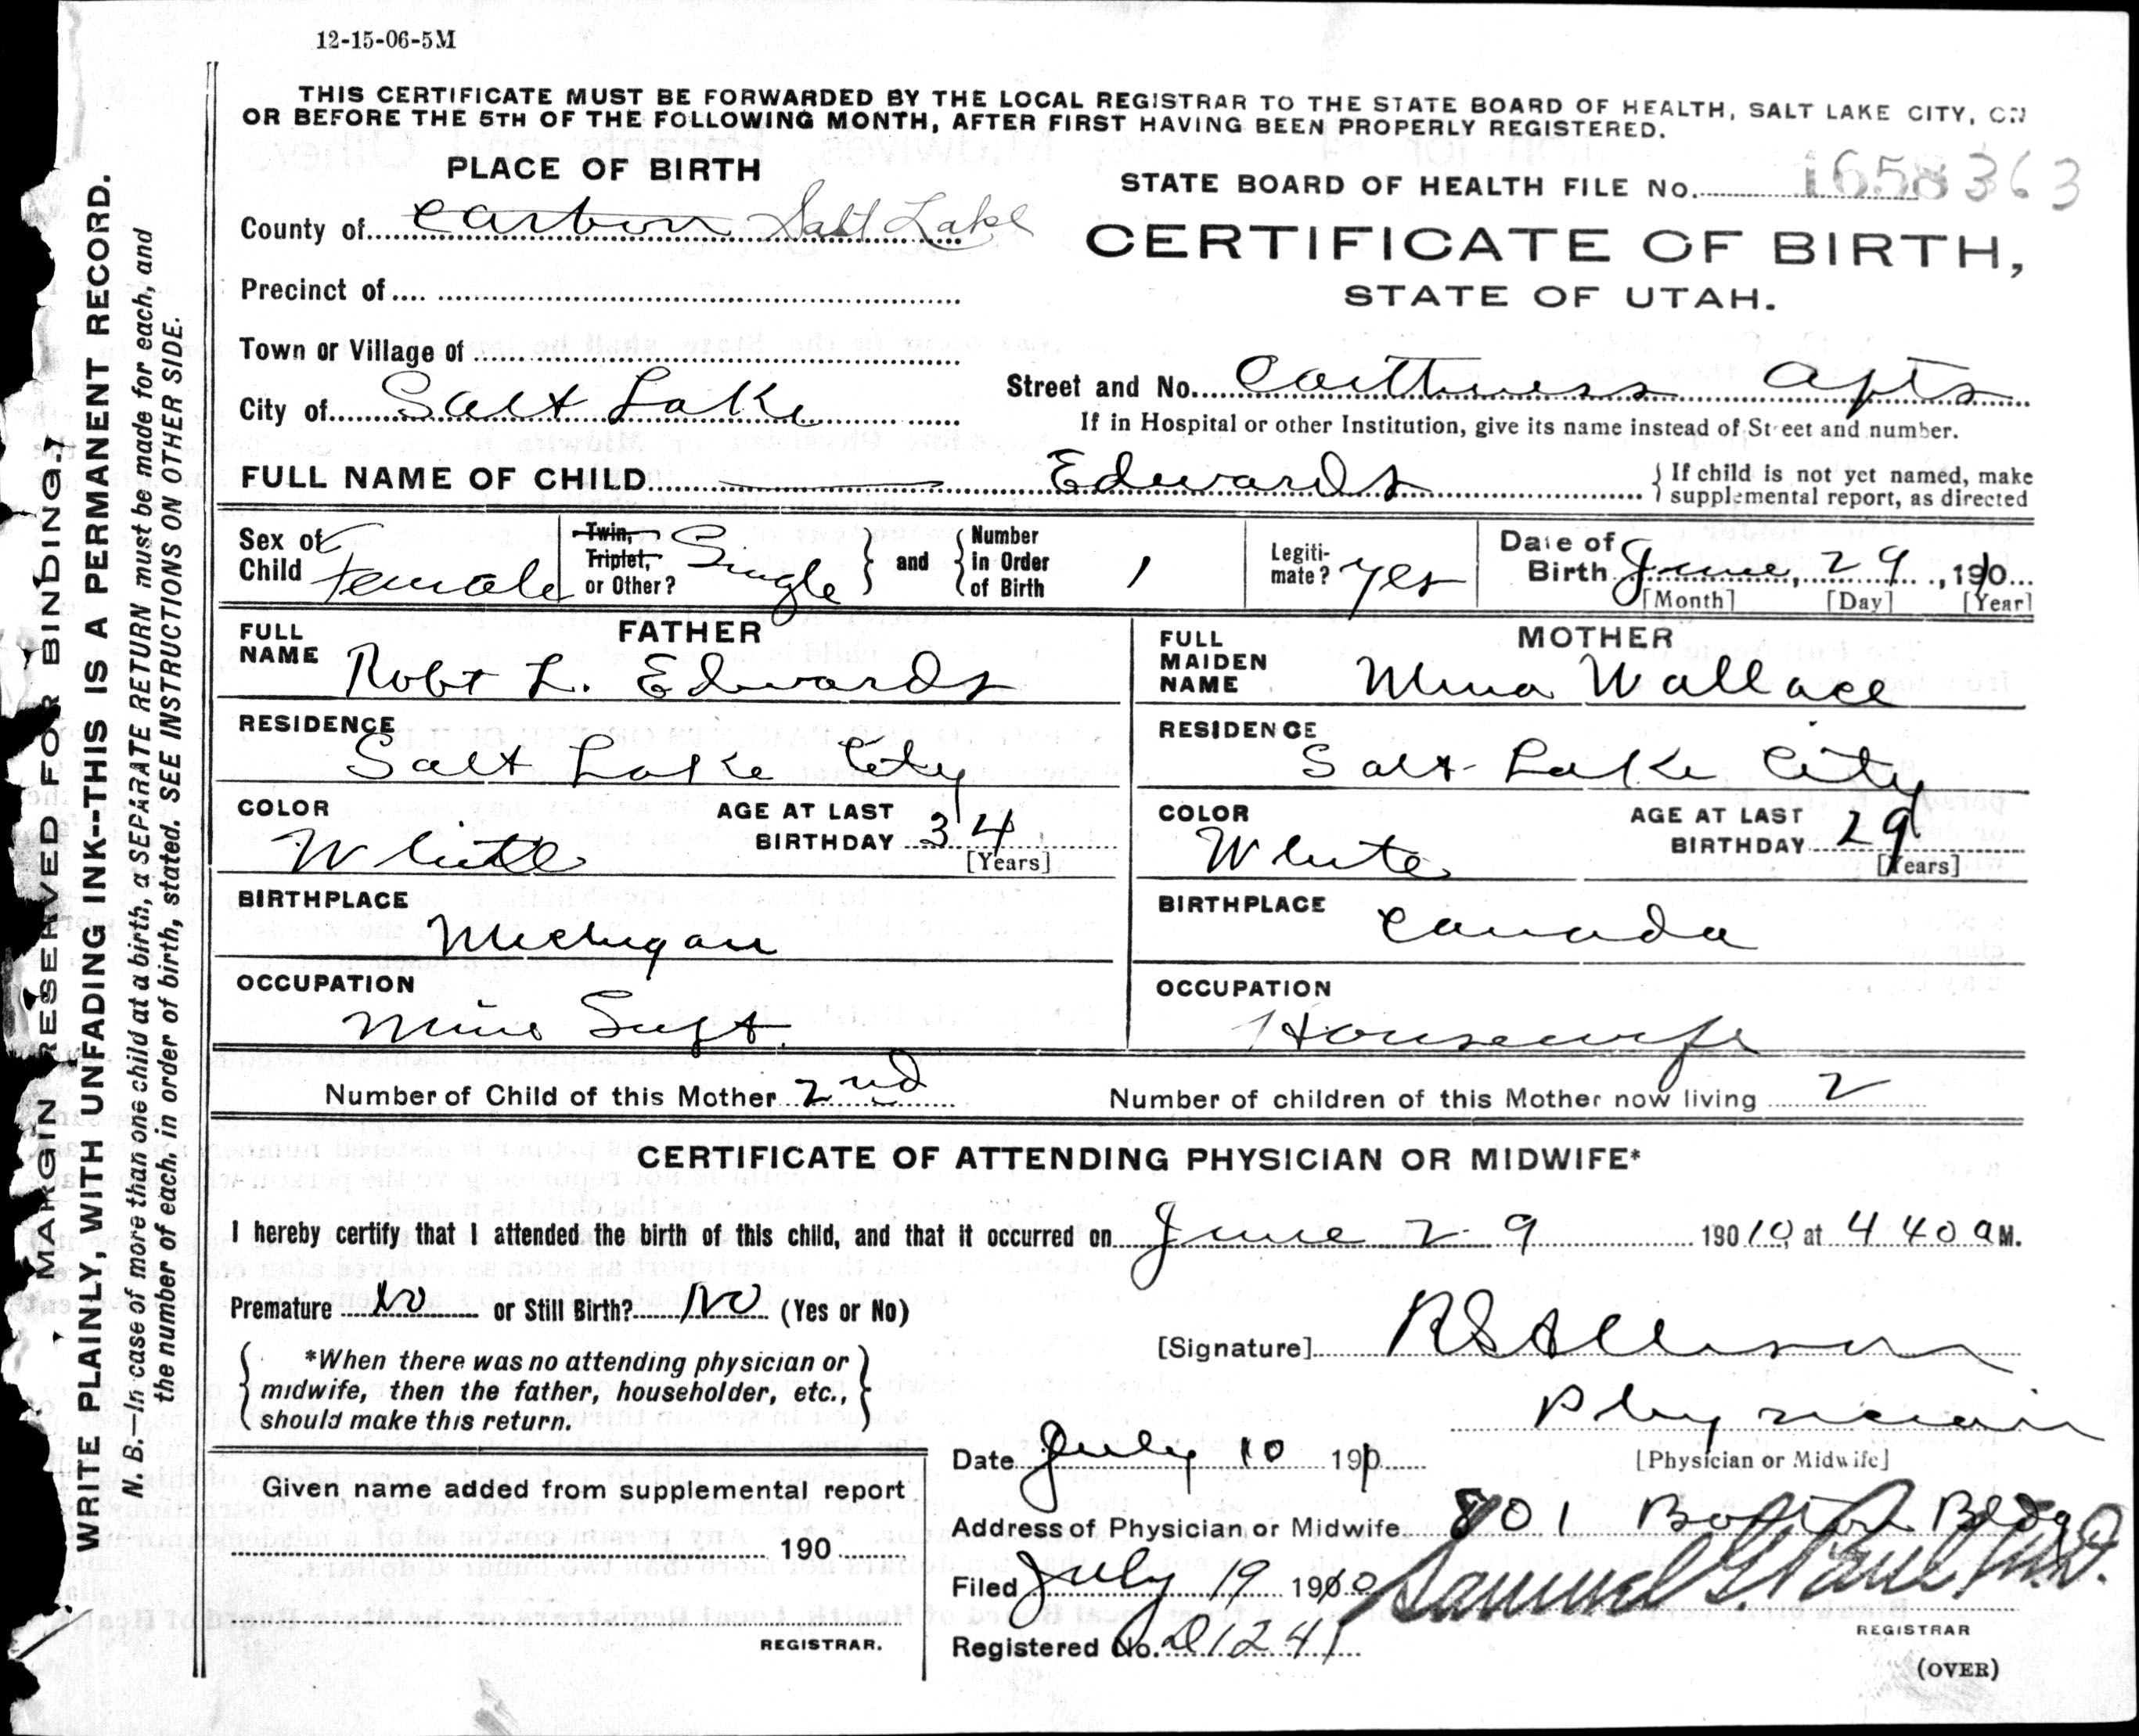 12-15-06-5M
THIS CERTIFICATE MUST BE FORWARDED BY THE LOCAL REGISTRAR TO THE STATE BOARD OF HEALTH, SALT LAKE CITY, ON
OR BEFORE THE 5TH OF THE FOLLOWING MONTH, AFTER FIRST HAVING BEEN PROPERLY REGISTERED.
PLACE OF BIRTH
STATE BOARD OF HEALTH FILE No. 1658363
County of Carbon Salt Lake
CERTIFICATE OF BIRTH,
STATE OF UTAH.
Precinct of
Town or Village of
City of Salt Lake
Street and No. Caithness Apts
If in Hospital or other Institution, give its name instead of Street and number.
FULL NAME OF CHILD Edwards
If child is not yet named, make
supplemental report, as directed
Sex of Child Female
Twin, Triplet, or Other? Single
and Number in Order of Birth 1
Legiti-mate? yes
Date of Birth June, 29, 1910
[Month] [Day] [Year]
FATHER
FULL NAME Robt L. Edwards
MOTHER
FULL MAIDEN NAME Mina Wallace
RESIDENCE Salt Lake City
RESIDENCE Salt Lake City
COLOR White
AGE AT LAST BIRTHDAY 34 [Years]
COLOR White
AGE AT LAST BIRTHDAY 29 [Years]
BIRTHPLACE Michigan
BIRTHPLACE Canada
OCCUPATION Mine Supt.
OCCUPATION Housewife
Number of Child of this Mother 2nd
Number of children of this Mother now living 2
CERTIFICATE OF ATTENDING PHYSICIAN OR MIDWIFE*
I hereby certify that I attended the birth of this child, and that it occurred on June 29 190 10, at 4 40 a M.
Premature No or Still Birth? No (Yes or No)
[Signature] R S Allison
*When there was no attending physician or
midwife, then the father, householder, etc.,
should make this return.
Physician
[Physician or Midwife]
Date July 10 1910
Given name added from supplemental report
190
REGISTRAR.
Address of Physician or Midwife 801 Boston Bldg
Filed July 19 1910 Samuel G. Paul M.D.
REGISTRAR
Registered No. 1241
(OVER)
MARGIN RESERVED FOR BINDING.
WRITE PLAINLY, WITH UNFADING INK--THIS IS A PERMANENT RECORD.
N B.—In case of more than one child at a birth, a SEPARATE RETURN must be made for each, and
the number of each, in order of birth, stated. SEE INSTRUCTIONS ON OTHER SIDE.